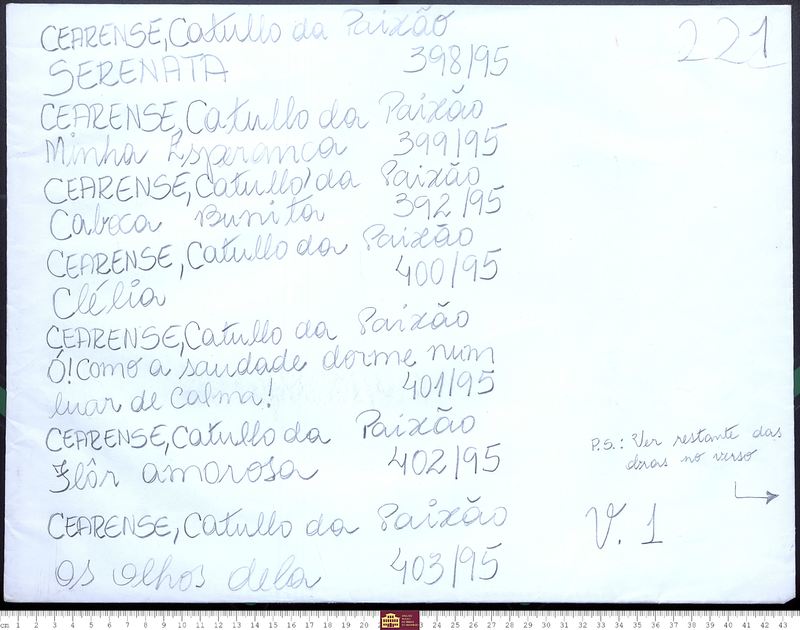 221
CEARENSE, Catullo da Paixão
SERENATA 398/95
CEARENSE, Catullo da Paixão
Minha Esperanca 399/95
CEARENSE, Catullo da Paixão
Caboca Bunita 392/95
CEARENSE, Catullo da Paixão
Clélia 400/95
CEARENSE, Catullo da Paixão
Ó! Como a saudade dorme num
luar de calma! 401/95
CEARENSE, Catullo da Paixão
Flôr amorosa 402/95
CEARENSE, Catullo da Paixão
Os olhos dela 403/95
P.S.: Ver restante das
no verso
V. 1
cm 1 2 3 4 5 6 7 8 9 10 11 12 13 14 15 16 17 18 19 20 23 24 25 26 27 28 29 30 31 32 33 34 35 36 37 38 39 40 41 42 43